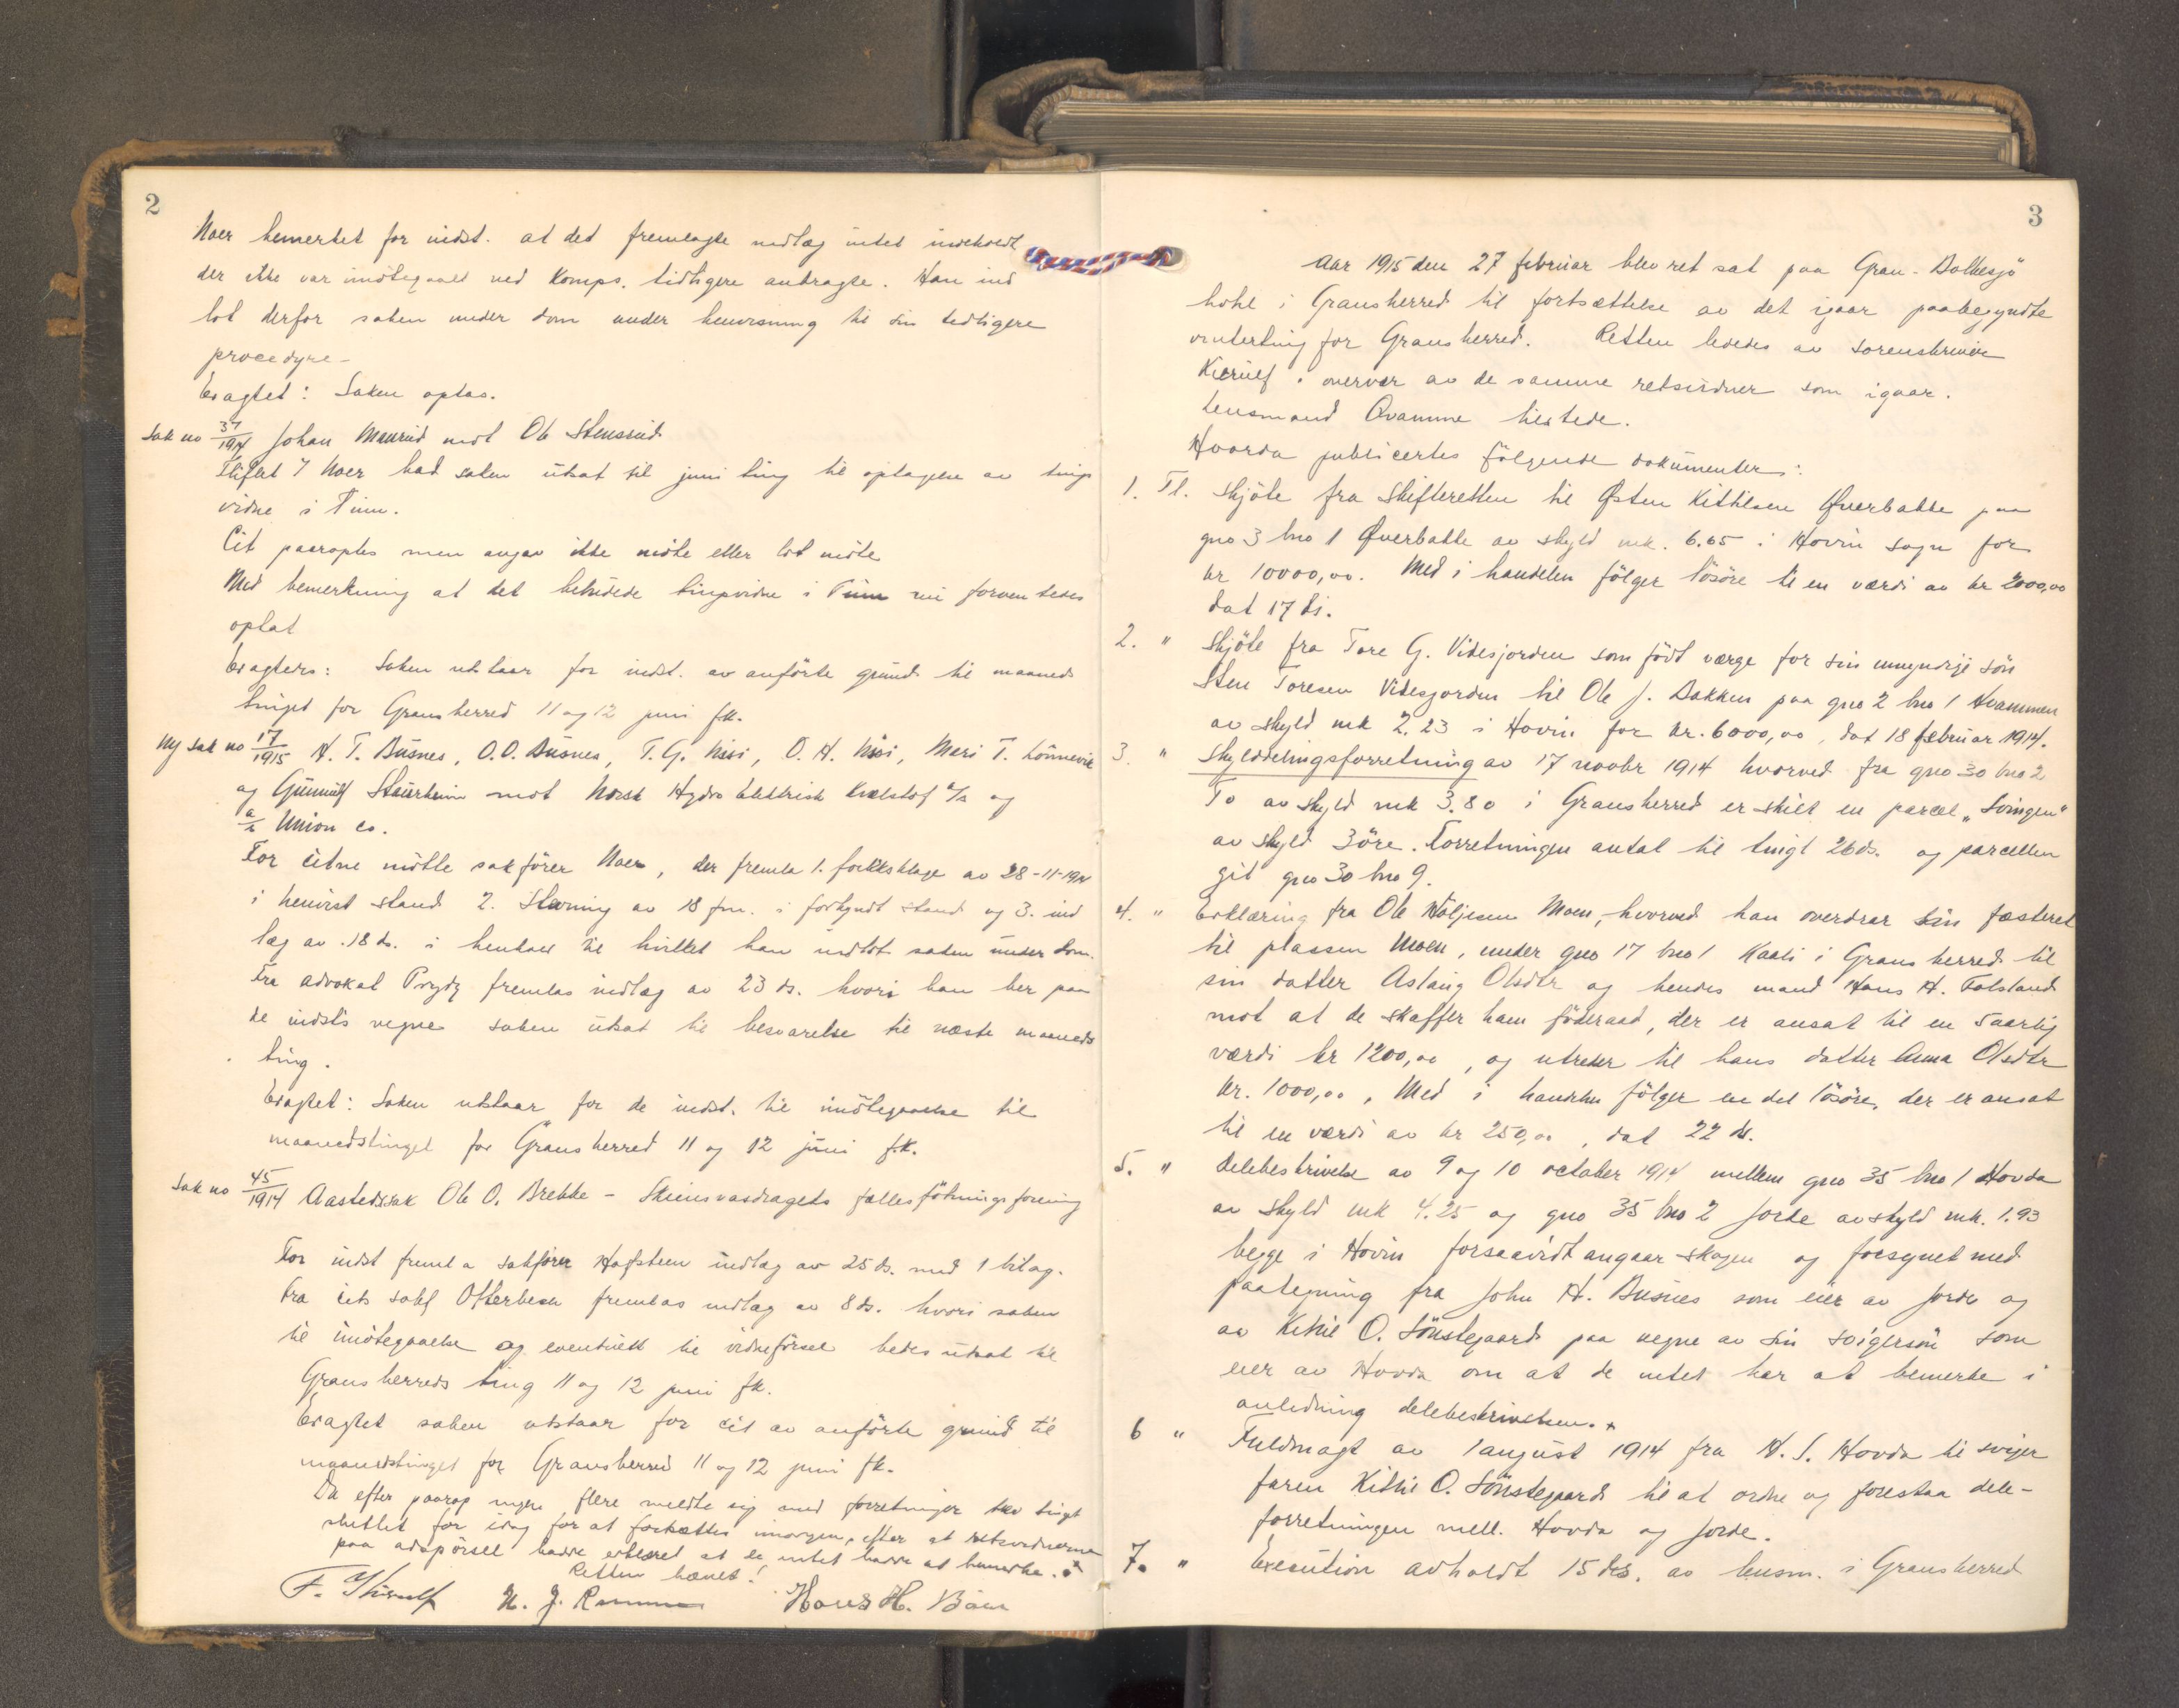 2
Noer bemerket for indst. at det fremlagte indlæg intet indeholdt
der ikke var imötegaaet ved Komps. tidligere anbragte. Han ind
lot derfor saken under dom under henvisning til sin tidligere
procedyre –
Eragtet: Saken optas.
Sak no 31/1914 Johan Maurud mot Ole Stensrud.
Noer bad saken utsat til juni ting til optagelse av tings
vidne i Tinn.
Cit. paaroptes men angav ikke möte eller lot möte
Med bemerkning at det beherdede tingsvidne i Tinn nu forventedes
optat
Eragters: Saken utstaar for indst. av anförte grund til maaneds
tinget for Gransherred 11 og 12 juni fk.
Ny sak no 17/1915 H. T. Busnes, O. O. Busnes, T. G. Misi, O. H. Misi, Mari T. Lönnevik
og Gunnulf Staurheim mot Norsk Hydro Elektrisk Kvælstof A/S og
A/S Union Co.
For citne mötte sakförer Noer, der fremla 1. forliksklage av 28-11-1914
i henvist stand 2. Stevning av 18 fm. i forkyndt stand og 3. ind
læg av 18 ds. i henhold til hvilket han indlot saken under dom.
Fra advokat Prydz fremlas indlæg av 23 ds. hvori han ber paa
de indst's vegne saken utsat til besvarelse til næste maaneds
ting.
Eragtet: Saken utstaar for de indst. til imötegaaelse til
maanedstinget for Gransherred 11 og 12 juni f.k.
Sak no 45/1914 Aastedssak Ole O. Brekke – Skiensvasdragets fællesflötningsforening
For indst fremla sakförer Hofsteen indlæg av 25 ds. med 1 bilag.
Fra cits sakf Otterbeck fremlas indlæg av 8 ds. hvori saken
til imötegaaelse og eventuelt til vidneförsel bedes utsat til
Gransherreds ting 11 og 12 juni fk.
Eragtet saken utstaar for cit av anförte grund til
maanedstinget for Gransherred 11 og 12 juni fk.
Da efter paarop ingen flere meldte sig med forretninger blev tinget
sluttet for idag for at fortsættes imorgen, efter at retsvidnerne
paa adspörsel hadde erklæret at de intet hadde at bemerke.
Retten hævet!
F. Kierulf H. J. Hans H. Böen
3
Aar 1915 den 27 februar blev ret sat paa Gran-Bolkesjö
hotel i Gransherred til fortsættelse av det igaar paabegyndte
vinterting for Gransherred. Retten lededes av sorenskriver
Kierulf i overvær av de samme retsvidner som igaar.
Lensmand Qvamme tilstede.
Hvorda publicertes fölgende dokumenter:
1. Tl. Skjöte fra Skifteretten til Østen Kittilsen Øverbakke paa
gno 3 bno 1 Øverbakke av skyld mk. 6.65 i Hovin sogn for
kr 10000,00. Med i handelen fölger lösöre til en værdi av kr 2000,00
dat 17 ds.
2. " Skjöte fra Tore G. Videsjorden som födt værge for sin umyndige sön
Sten Toresen Videsjorden til Ole J. Bakken paa gno 2 bno 1 Hvammen
av skyld mk 2.23 i Hovin for kr. 6000,00, dat 18 februar 1914.
3. " Skylddelingsforretning av 17 novbr 1914 hvorved fra gno 30 bno 2
To av skyld mk 3.80 i Gransherred er skilt en parcel „Svingen"
av skyld 3 öre. Forretningen antat til tingl 26 ds. og parcellen
git gno 30 bno 9.
4. " Erklæring fra Ole Höljesen Moen, hvorved han overdrar sin fæsteret
til plassen Moen, under gno 17 bno 1 Kaali i Gransherred til
sin datter Aslaug Olsdtr og hendes mand Hans H. Folsland
mot at de skaffer ham föderaad, der er ansat til en 5 aarlig
værdi kr 1200,00, og utreder til hans datter Anna Olsdtr
kr. 1000,00. Med i handelen fölger en del lösöre, der er ansat
til en værdi av kr 250,00, dat 22 ds.
5. " Delebeskrivelse av 9 og 10 october 1914 mellem gno 35 bno 1 Hovda
av skyld mk 4.25 og gno 35 bno 2 Jorde av skyld mk. 1.93
begge i Hovin forsaavidt angaar skogen og forsynet med
paategning fra John H. Busnes som eier av Jorde og
av Kittil O. Sönstegaard paa vegne av sin svigersön som
eier av Hovda om at de intet har at bemerke i
anledning delebeskrivelsen.
6 " Fuldmagt av 1 august 1914 fra H. S. Hovda til sviger
faren Kittil O. Sönstegaard til at ordne og forestaa dele-
forretningen mell. Hovda og Jorde.
7. " Execution avholdt 15 ds. av lensm. i Gransherred